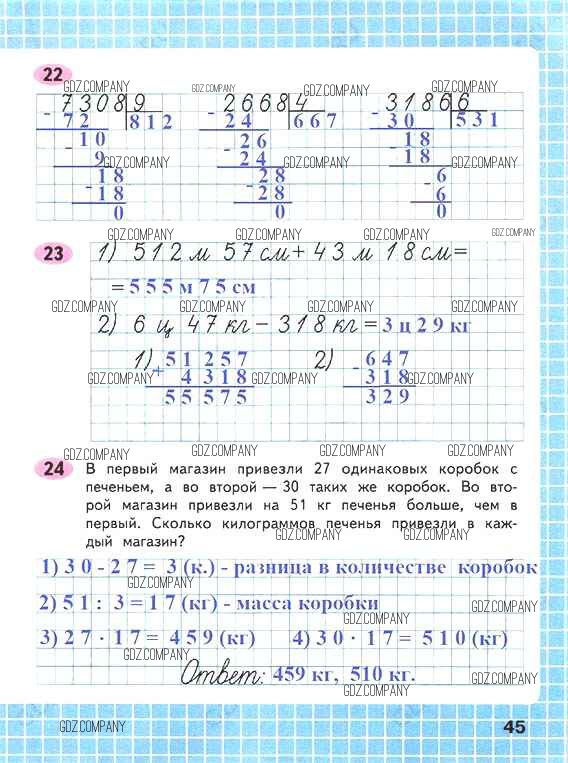 22
GDZ.COMPANY GDZ.COMPANY GDZ.COMPANY GDZ.COMPANY
7308 9 2668 4 31866 6
- 72 812 - 24 667 - 30 531
- 10 - 26 - 18
9 24 18
GDZ.COMPANY GDZ.COMPANY GDZ.COMPANY GDZ.COMPANY
- 18 - 28 - 6
18 28 6
0 0 0
GDZ.COMPANY GDZ.COMPANY GDZ.COMPANY GDZ.COMPANY
23 1) 512 м 57 см + 43 м 18 см =
= 555 м 75 см
GDZ.COMPANY GDZ.COMPANY GDZ.COMPANY GDZ.COMPANY
2) 6 ц 47 кг – 318 кг = 3 ц 29 кг
1) 51257 2) 647
+ 4318 - 318
GDZ.COMPANY GDZ.COMPANY GDZ.COMPANY GDZ.COMPANY
55575 329
GDZ.COMPANY GDZ.COMPANY GDZ.COMPANY GDZ.COMPANY
24 В первый магазин привезли 27 одинаковых коробок с
печеньем, а во второй — 30 таких же коробок. Во вто-
рой магазин привезли на 51 кг печенья больше, чем в
первый. Сколько килограммов печенья привезли в каж-
дый магазин?
GDZ.COMPANY GDZ.COMPANY GDZ.COMPANY
1) 30 - 27 = 3 (к.) - разница в количестве коробок
2) 51 : 3 = 17 (кг) - масса коробки
GDZ.COMPANY GDZ.COMPANY GDZ.COMPANY
3) 27 · 17 = 459 (кг) 4) 30 · 17 = 510 (кг)
GDZ.COMPANY
Ответ: 459 кг, 510 кг.
GDZ.COMPANY GDZ.COMPANY
GDZ.COMPANY 45